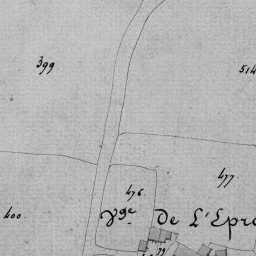 399
514
477
476
400
Vge De L'Epre